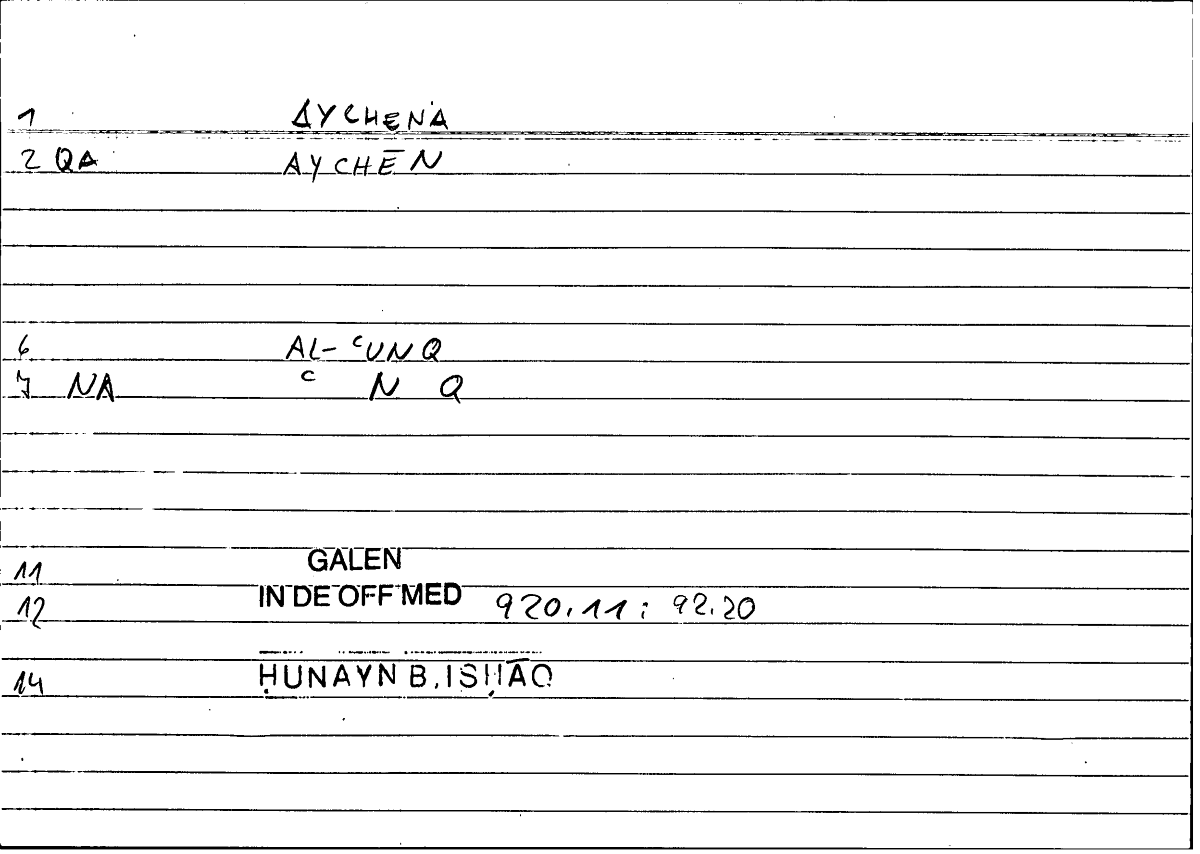 1 AYCHENA
2 QA AYCHĒN
6 AL-ᶜUNQ
7 NA ᶜ N Q
11 GALEN
12 IN DE OFF MED 920,11 ; 92,20
14 ḤUNAYN B. ISḤĀQ